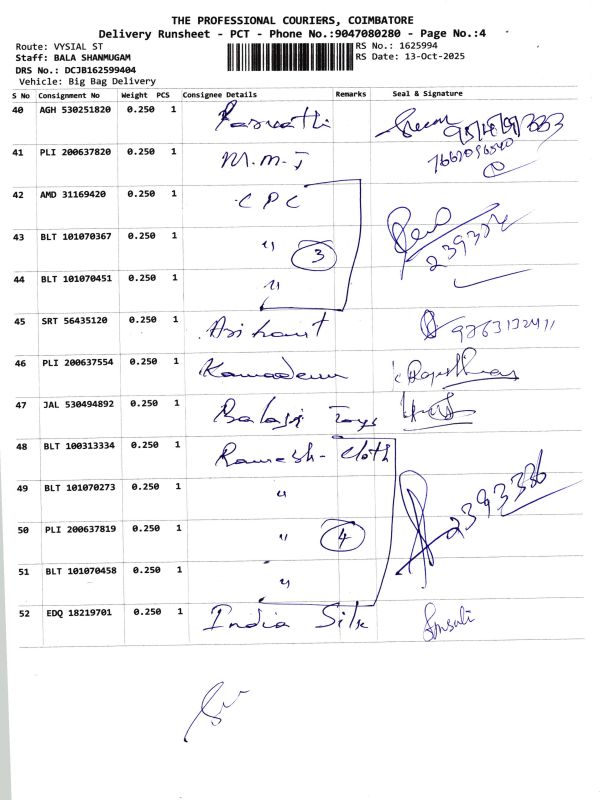 THE PROFESSIONAL COURIERS, COIMBATORE
Delivery Runsheet - PCT - Phone No.:9047080280 - Page No.:4
Route: VYSIAL ST RS No.: 1625994
Staff: BALA SHANMUGAM RS Date: 13-Oct-2025
DRS No.: DCJB162599404
Vehicle: Big Bag Delivery
S No Consignment No Weight PCS Consignee Details Remarks Seal & Signature
40 AGH 530251820 0.250 1
41 PLI 200637820 0.250 1 M.M.T
42 AMD 31169420 0.250 1 C P C
43 BLT 101070367 0.250 1 " 3
44 BLT 101070451 0.250 1 "
45 SRT 56435120 0.250 1 Arihant
46 PLI 200637554 0.250 1
47 JAL 530494892 0.250 1 Balaji Toys
48 BLT 100313334 0.250 1 Ramesh- Cloth
49 BLT 101070273 0.250 1 " 2393386
50 PLI 200637819 0.250 1 " 4
51 BLT 101070458 0.250 1 "
52 EDQ 18219701 0.250 1 India Silk